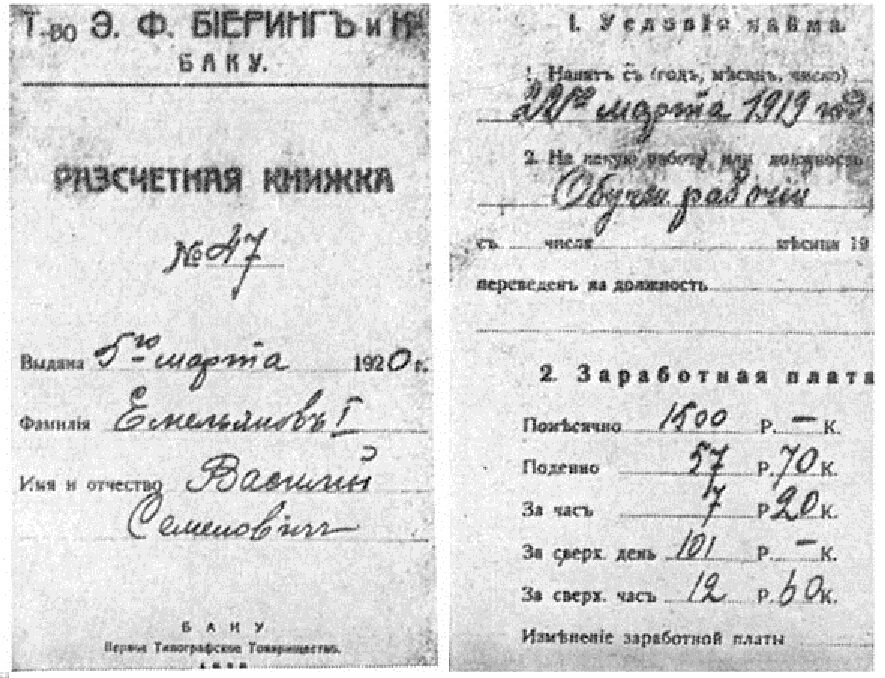 Т-во Э. Ф. БІЕРИНГЪ и Ко
БАКУ.
РАЗСЧЕТНАЯ КНИЖКА
№ 47
Выдана 5го марта 1920 г.
Фамилія Емельяновъ I
Имя и отчество Василій
Семеновичъ
БАКУ
Первое Типографское Товарищество.
1. Условія найма.
1. Нанятъ съ (годъ, мѣсяцъ, число)
22го марта 1919 года
2. На какую работу или должность
Обучен. рабочій
съ числа мѣсяца 19
переведенъ на должность
2. Заработная плата
Помѣсячно 1500 Р. — К.
Поденно 57 Р. 70 К.
За часъ 7 Р. 20 К.
За сверх. день 101 Р. — К.
За сверх. часъ 12 Р. 60 К.
Измѣненіе заработной платы